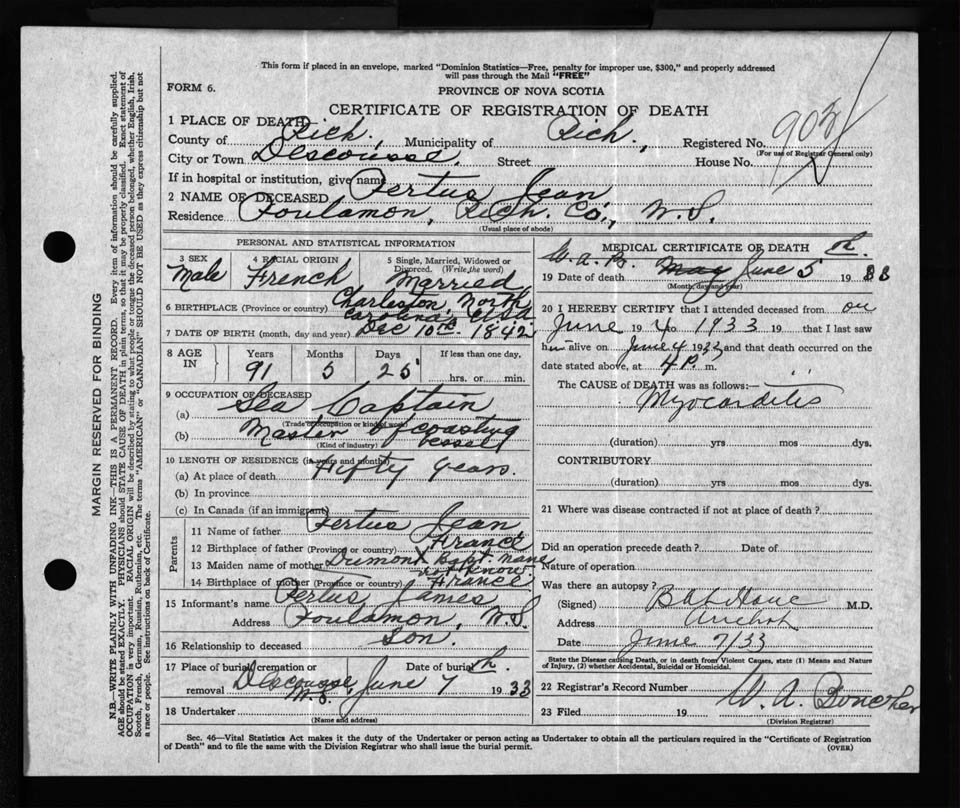 This form if placed in an envelope, marked "Dominion Statistics—Free, penalty for improper use, $300," and properly addressed
will pass through the Mail "FREE"
FORM 6.
PROVINCE OF NOVA SCOTIA
CERTIFICATE OF REGISTRATION OF DEATH
1 PLACE OF DEATH
County of Rich. Municipality of Rich., Registered No. 903
(For use of Registrar General only)
City or Town Descousse. Street House No.
If in hospital or institution, give name
2 NAME OF DECEASED Fertus Jean.
Residence Poulamon, Rich. Co., N.S.
(Usual place of abode)
PERSONAL AND STATISTICAL INFORMATION
3 SEX 4 RACIAL ORIGIN 5 Single, Married, Widowed or
Divorced. (Write the word)
Male French Married
6 BIRTHPLACE (Province or country) Charleston, North
Carolina, USA
7 DATE OF BIRTH (month, day and year) Dec 10th 1842
8 AGE IN Years Months Days If less than one day,
91 5 25 hrs. or min.
9 OCCUPATION OF DECEASED
(a) Sea Captain
(Trade occupation or kind of work)
(b) Master of coasting
vessel
(Kind of industry)
10 LENGTH OF RESIDENCE (in years and months)
(a) At place of death Fifty years.
(b) In province
(c) In Canada (if an immigrant)
Parents
11 Name of father Fertus Jean
12 Birthplace of father (Province or country) France
13 Maiden name of mother Dumont, bapt. name
not know
14 Birthplace of mother (Province or country) France
15 Informant's name Fertus James
Address Poulamon, N.S.
16 Relationship to deceased Son.
17 Place of burial, cremation or removal Date of burial
Descousse N.S. June 7th 1933
18 Undertaker
(Name and address)
MEDICAL CERTIFICATE OF DEATH
W. A. B.
19 Date of death May June 5th 1933
(Month, day and year)
20 I HEREBY CERTIFY that I attended deceased from on
June 4 1933 19 that I last saw
him alive on June 4 1933 and that death occurred on the
date stated above, at 4 P. m.
The CAUSE of DEATH was as follows:
Myocarditis
(duration) yrs mos dys.
CONTRIBUTORY
(duration) yrs. mos. dys.
21 Where was disease contracted if not at place of death?
Did an operation precede death? Date of
Nature of operation
Was there an autopsy?
(Signed) M.D.
Address Arichat
Date June 7/33
State the Disease causing Death, or in death from Violent Causes, state (1) Means and Nature
of Injury, (2) whether Accidental, Suicidal or Homicidal.
22 Registrar's Record Number
23 Filed 19 W. A. Boucher
(Division Registrar)
Sec. 46—Vital Statistics Act makes it the duty of the Undertaker or person acting as Undertaker to obtain all the particulars required in the "Certificate of Registration
of Death" and to file the same with the Division Registrar who shall issue the burial permit.
(OVER)
MARGIN RESERVED FOR BINDING
N.B.—WRITE PLAINLY WITH UNFADING INK—THIS IS A PERMANENT RECORD. Every item of information should be carefully supplied.
AGE should be stated EXACTLY. PHYSICIANS should STATE CAUSE OF DEATH in plain terms, so that it may be properly classified. Exact statement of
OCCUPATION is very important. RACIAL ORIGIN will be described by stating to what people or tongue the deceased person belonged, whether English, Irish,
Scotch, French, German, Russian, Ruthenian, etc. The terms "AMERICAN" or "CANADIAN" SHOULD NOT BE USED as they express citizenship but not
a race or people. See instructions on back of Certificate.